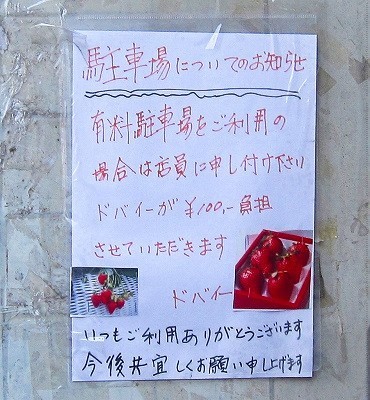 駐車場についてのお知らせ
有料駐車場をご利用の
場合は店員に申し付け下さい
ドバイーが¥100,-負担
させていただきます
ドバイー
いつもご利用ありがとうございます
今後共宜しくお願い申し上げます